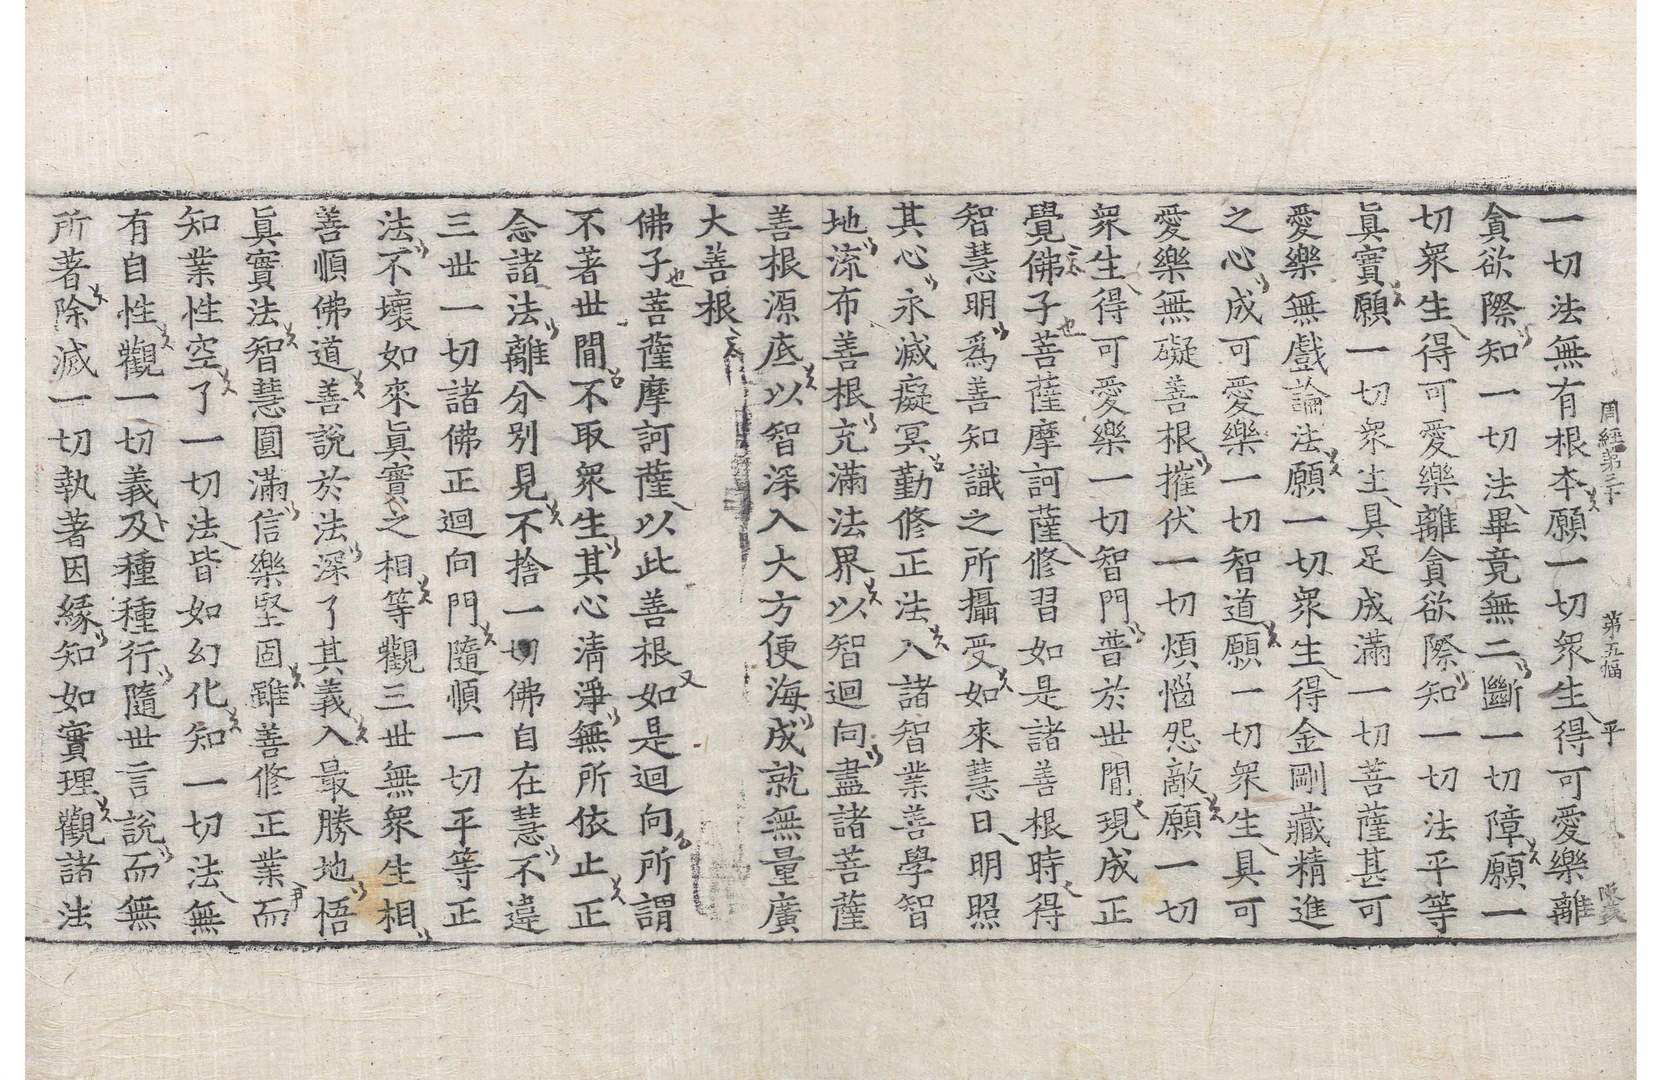 周經第三十　第五幅　平
一切法無有根本願一切衆生得可愛樂離
貪欲際知一切法畢竟無二斷一切障願一
切衆生得可愛樂離貪欲際知一切法平等
眞實願一切衆生具足成滿一切菩薩甚可
愛樂無戲論法願一切衆生得金剛藏精進
之心成可愛樂一切智道願一切衆生具可
愛樂無礙善根摧伏一切煩惱怨敵願一切
衆生得可愛樂一切智門普於世閒現成正
覺佛子菩薩摩訶薩修習如是諸善根時得
智慧明爲善知識之所攝受如來慧日明照
其心永滅癡冥勤修正法入諸智業善學智
地流布善根充滿法界以智迴向盡諸菩薩
善根源底以智深入大方便海成就無量廣
大善根
佛子菩薩摩訶薩以此善根如是迴向所謂
不著世閒不取衆生其心淸淨無所依止正
念諸法離分別見不捨一切佛自在慧不違
三世一切諸佛正迴向門隨順一切平等正
法不壞如來眞實之相等觀三世無衆生相
善順佛道善說於法深了其義入最勝地悟
眞實法智慧圓滿信樂堅固雖善修正業而
知業性空了一切法皆如幻化知一切法無
有自性觀一切義及種種行隨世言說而無
所著除滅一切執著因緣知如實理觀諸法